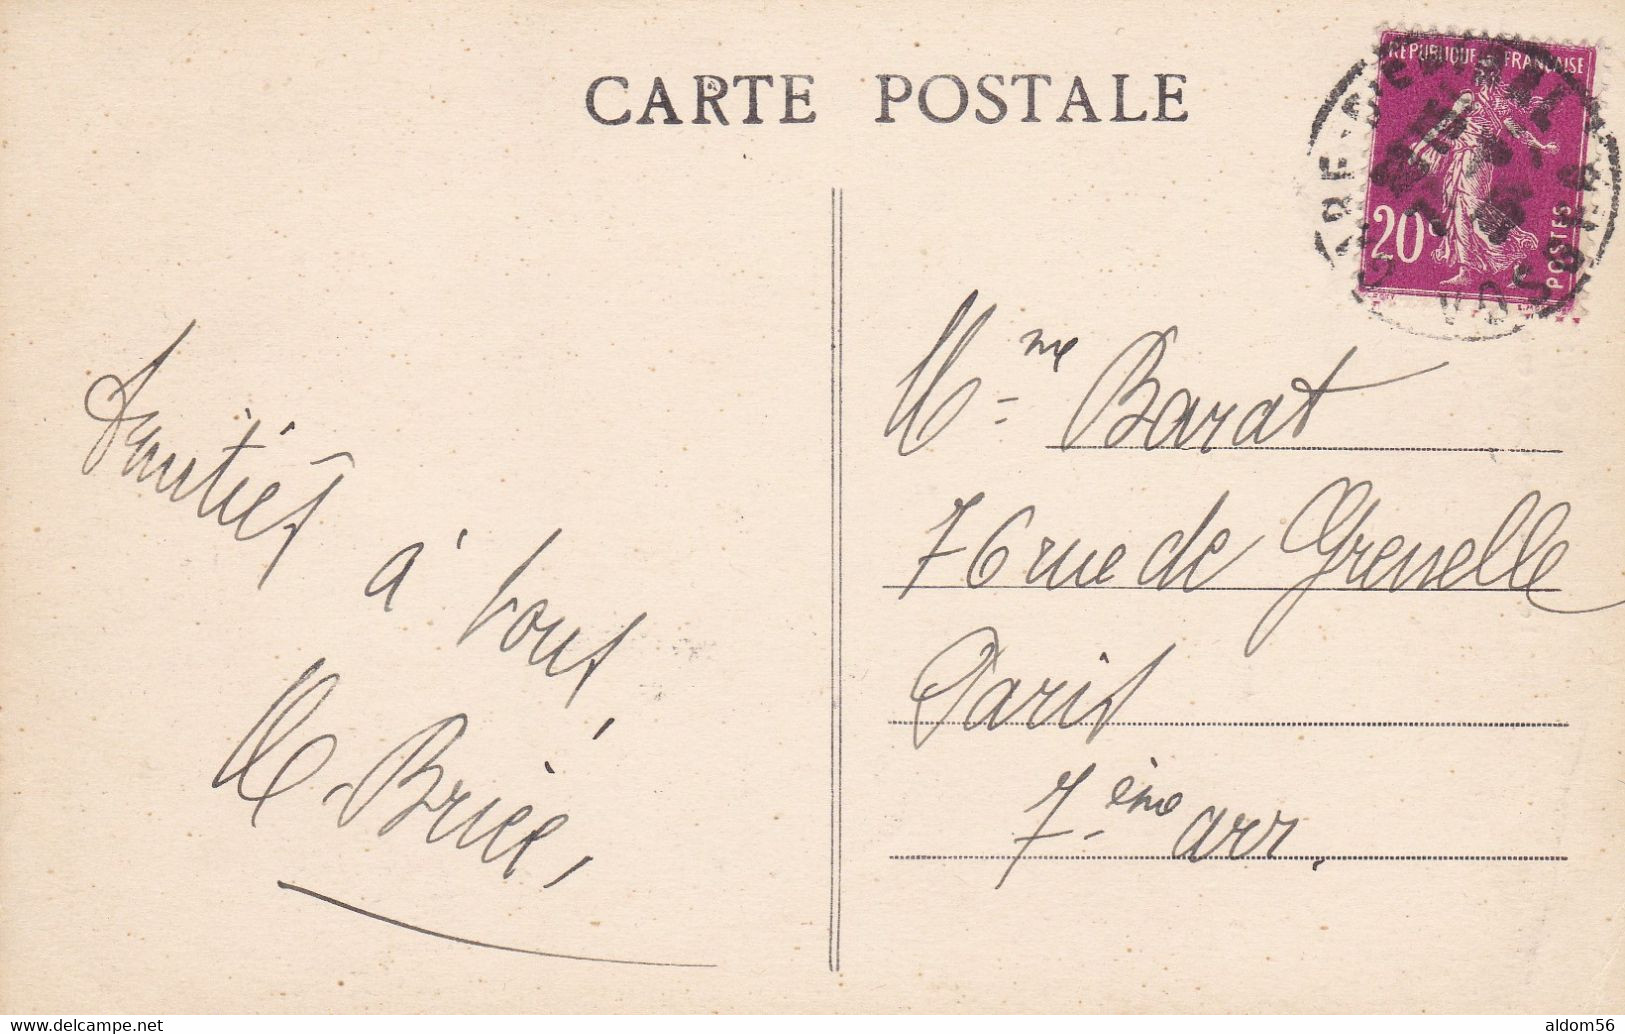 CARTE POSTALE
REPUBLIQUE FRANÇAISE
20c
POSTES
VOSGES
Amitiés
à tous,
M. Briée,
Mme Barat
76 rue de Grenelle
Paris
7ème arr.
www.delcampe.net
aldom56